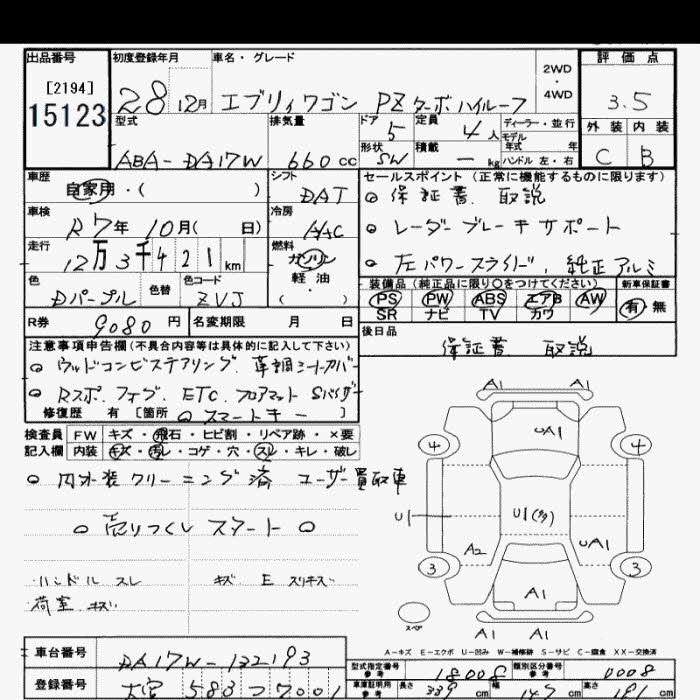 出品番号 初度登録年月 車名・グレード 評価点
[2194]
15123 28 12月 エブリィワゴン PZターボハイルーフ 2WD・4WD 3.5
型式 排気量 ドア 5 定員 4人 ディーラー・並行 外装 内装
モデル年式 年
ABA-DA17W 660cc 形状 SW 積載 - kg ハンドル 左・右 C B
車歴 シフト セールスポイント (正常に機能するものに限ります)
自家用・( ) DAT 保証書 取説
車検 冷房
R7年10月( 日) A/C レーダーブレーキサポート
走行 燃料
12万3千421km ガソリン 左パワースライド、純正アルミ
色 色替 色コード 軽油 装備品(純正品に限り○をつけてください) 新車保証書
Dパープル ZVJ ( ) PS PW ABS エアB AW 有・無
SR ナビ TV カワ
R券 9080円 名変期限 月 日 後日品
注意事項申告欄(不具合内容等は具体的に記入して下さい) 保証書 取説
ウッドコンビステアリング 革調シートカバー
Rスポ. フォグ. ETC. フロアマット Sバイザー
修復歴 有 [箇所 スマートキー ]
検査員 FW キズ・飛石・ヒビ割・リペア跡・×要
記入欄 内装 キズ・汚レ・コゲ・穴・スレ・キレ・破レ
内外装クリーニング済 ユーザー買取車
売りつくしスタート
ハンドル スレ キズ E スリキズ
荷室 キズ
A1 A1
4 UA1 4
U1 U1(多)
A2 UA1
3 A1 3
スペア A1 A1
A-キズ E-エクボ U-凹み W-補修跡 S-サビ C-腐食 XX-交換済
車台番号 DA17W-132193
型式指定番号 参考 18008 類別区分番号 参考 0008
登録番号 大宮 583 つ 7001
車庫証明用 参考 長さ 339cm 幅 147cm 高さ 191cm